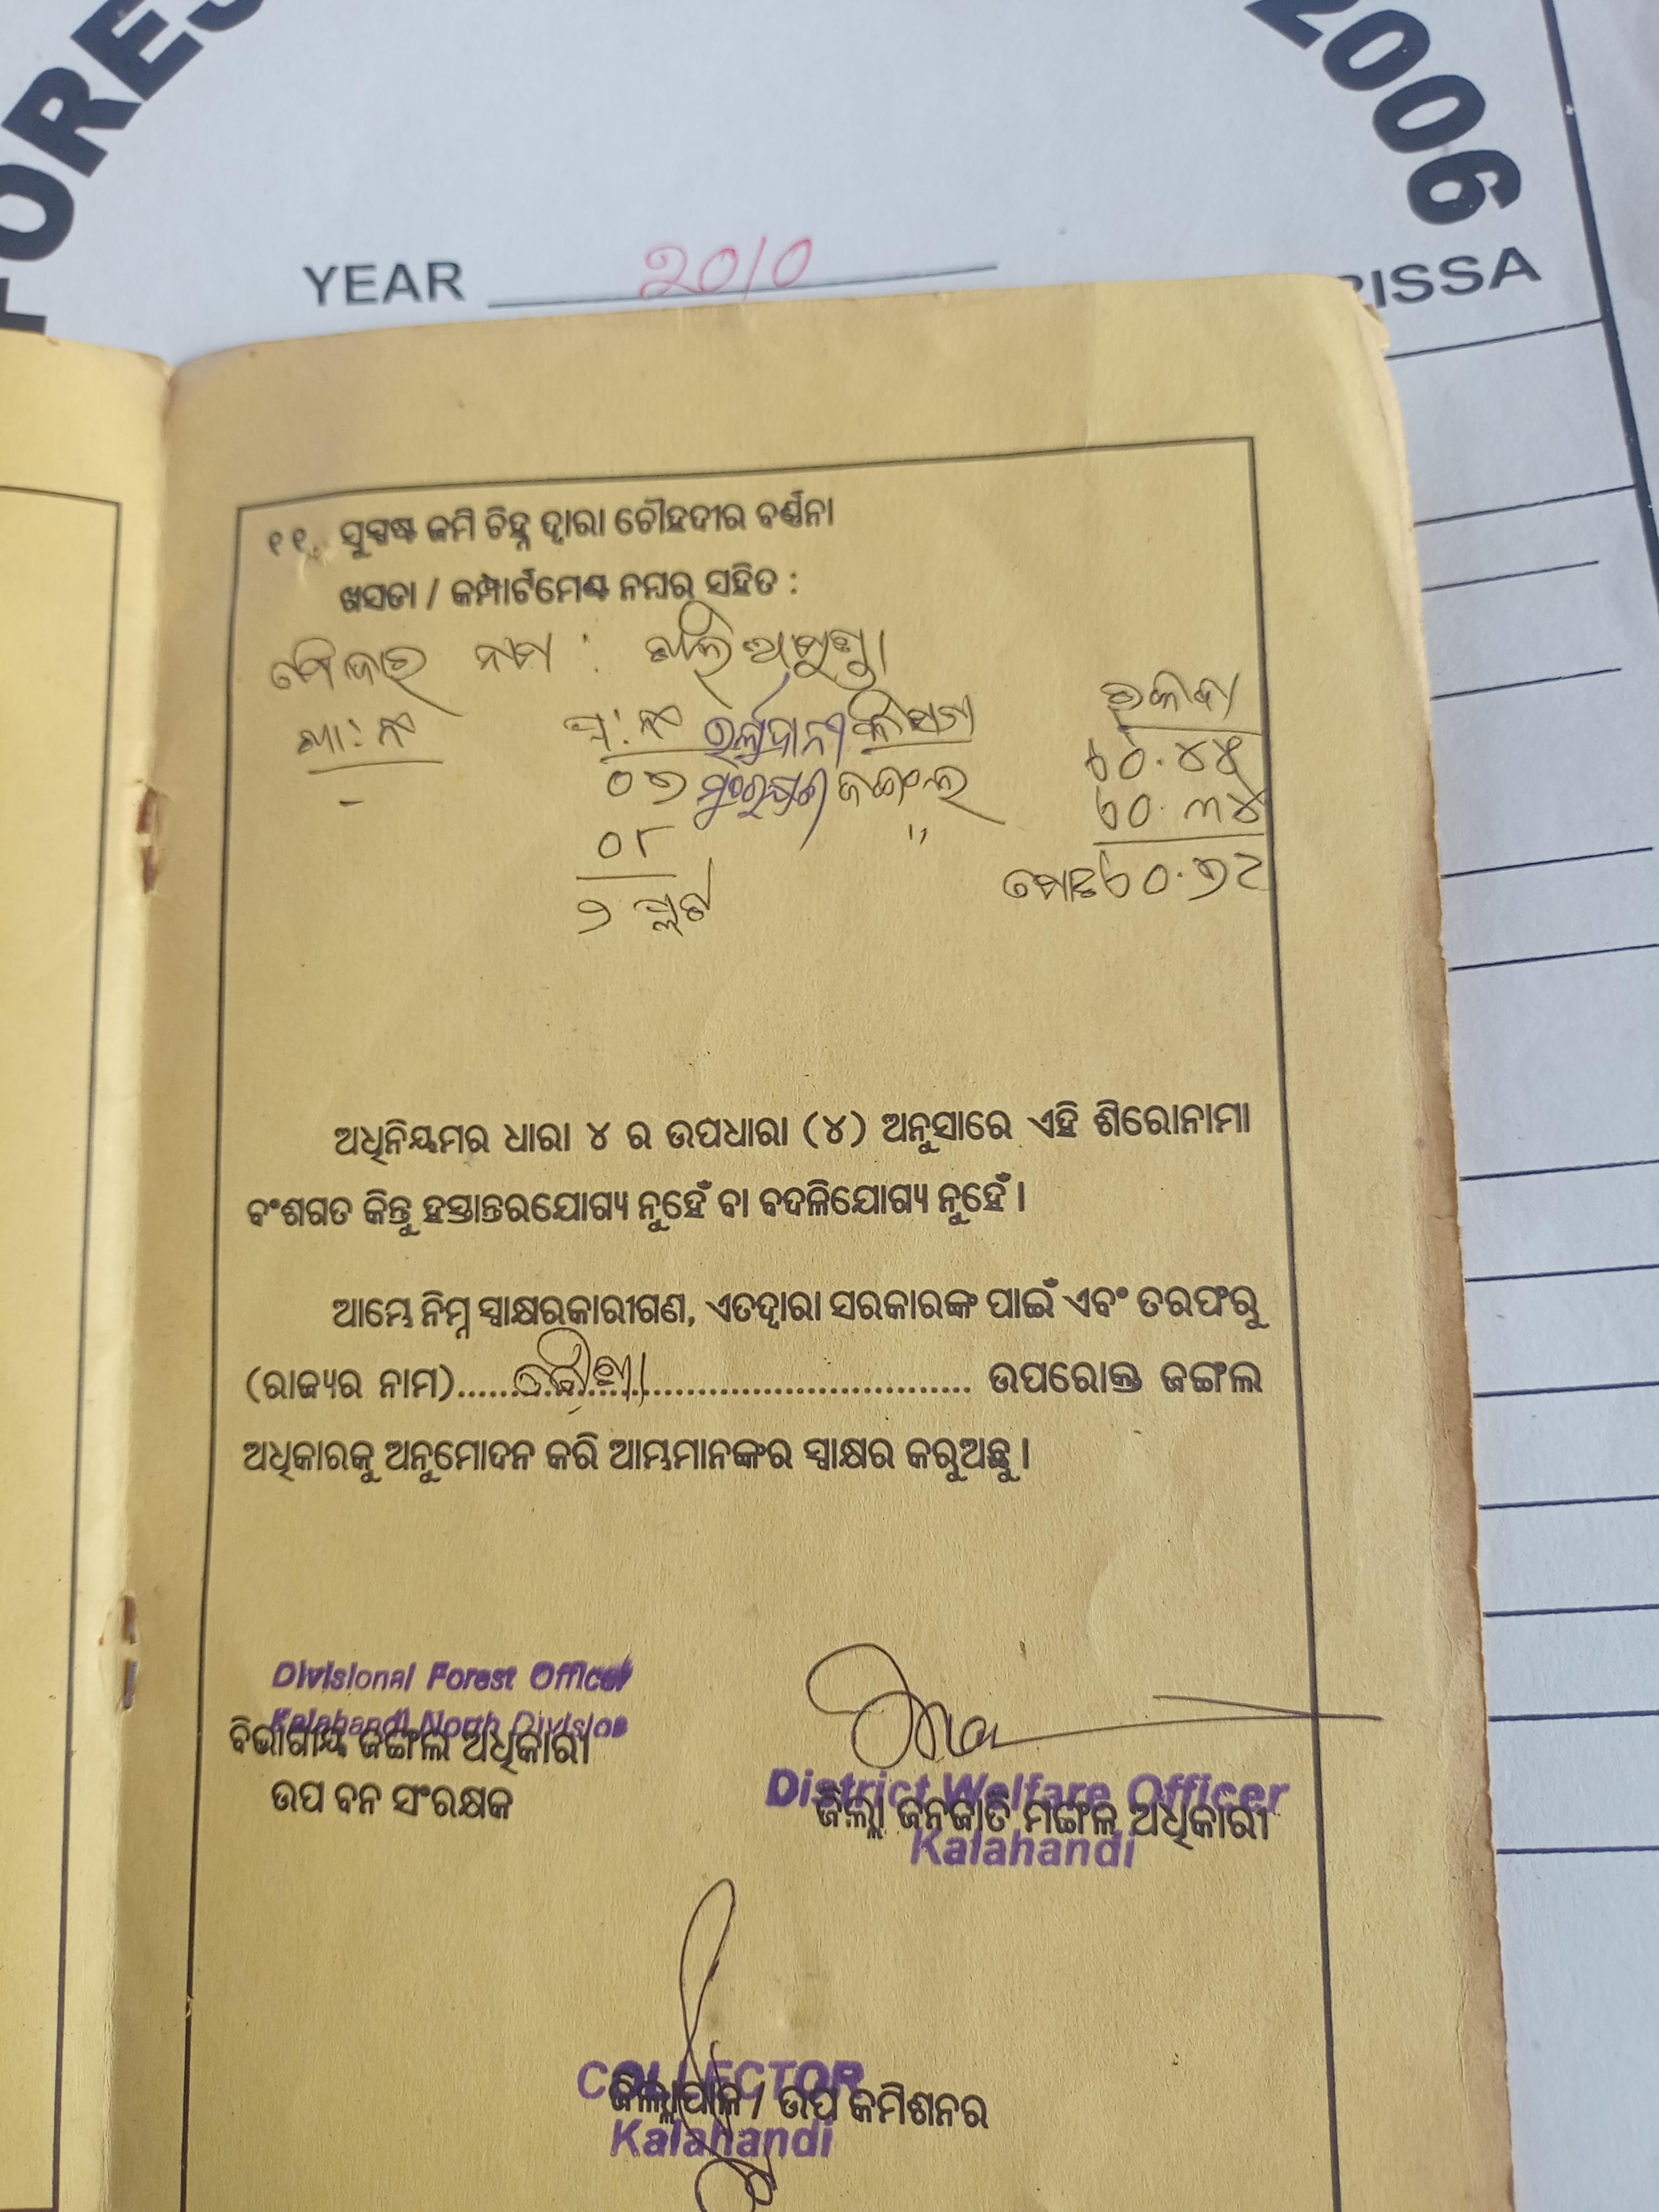 FORES
2006
YEAR 2010
RISSA
୧୧. ସୁସ୍ପଷ୍ଟ ଜମି ଚିହ୍ନ ଦ୍ଵାରା ଚୌହଦୀର ବର୍ଣ୍ଣନା
ଖସଡା / କମ୍ପାର୍ଟମେଣ୍ଟ ନମ୍ବର ସହିତ :
ମୌଜାର ନାମ :
ଖା: ନଂ ପ୍ଳ: ନଂ କିସମ ରକବା
- ୦୭ ଜଙ୍ଗଲ ୦.୪୫
୦୮ " ୦.୩୪
୨ ପ୍ଲଟ ମୋଟ ୦.୭୯
ଅଧିନିୟମର ଧାରା ୪ ର ଉପଧାରା (୪) ଅନୁସାରେ ଏହି ଶିରୋନାମା
ବଂଶଗତ କିନ୍ତୁ ହସ୍ତାନ୍ତରଯୋଗ୍ୟ ନୁହେଁ ବା ବଦଳିଯୋଗ୍ୟ ନୁହେଁ ।
ଆମ୍ଭେ ନିମ୍ନ ସ୍ଵାକ୍ଷରକାରୀଗଣ, ଏତଦ୍ଵାରା ସରକାରଙ୍କ ପାଇଁ ଏବଂ ତରଫରୁ
(ରାଜ୍ୟର ନାମ)........ଓଡ଼ିଶା........ ଉପରୋକ୍ତ ଜଙ୍ଗଲ
ଅଧିକାରକୁ ଅନୁମୋଦନ କରି ଆମ୍ଭମାନଙ୍କର ସ୍ଵାକ୍ଷର କରୁଅଛୁ ।
Divisional Forest Officer
Kalahandi North Division
ବିଭାଗୀୟ ଜଙ୍ଗଲ ଅଧିକାରୀ
ଉପ ବନ ସଂରକ୍ଷକ
District Welfare Officer
ଜିଲ୍ଲା ଜନଜାତି ମଙ୍ଗଳ ଅଧିକାରୀ
Kalahandi
COLLECTOR
ଜିଲ୍ଲାପାଳ / ଉପ କମିଶନର
Kalahandi